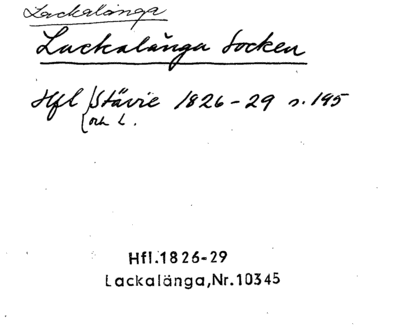 Lackalänga
Lackalänga Socken
Hfl Stävie 1826-29 s. 195
(och L.
Hfl.1826-29
Lackalänga,Nr.10345